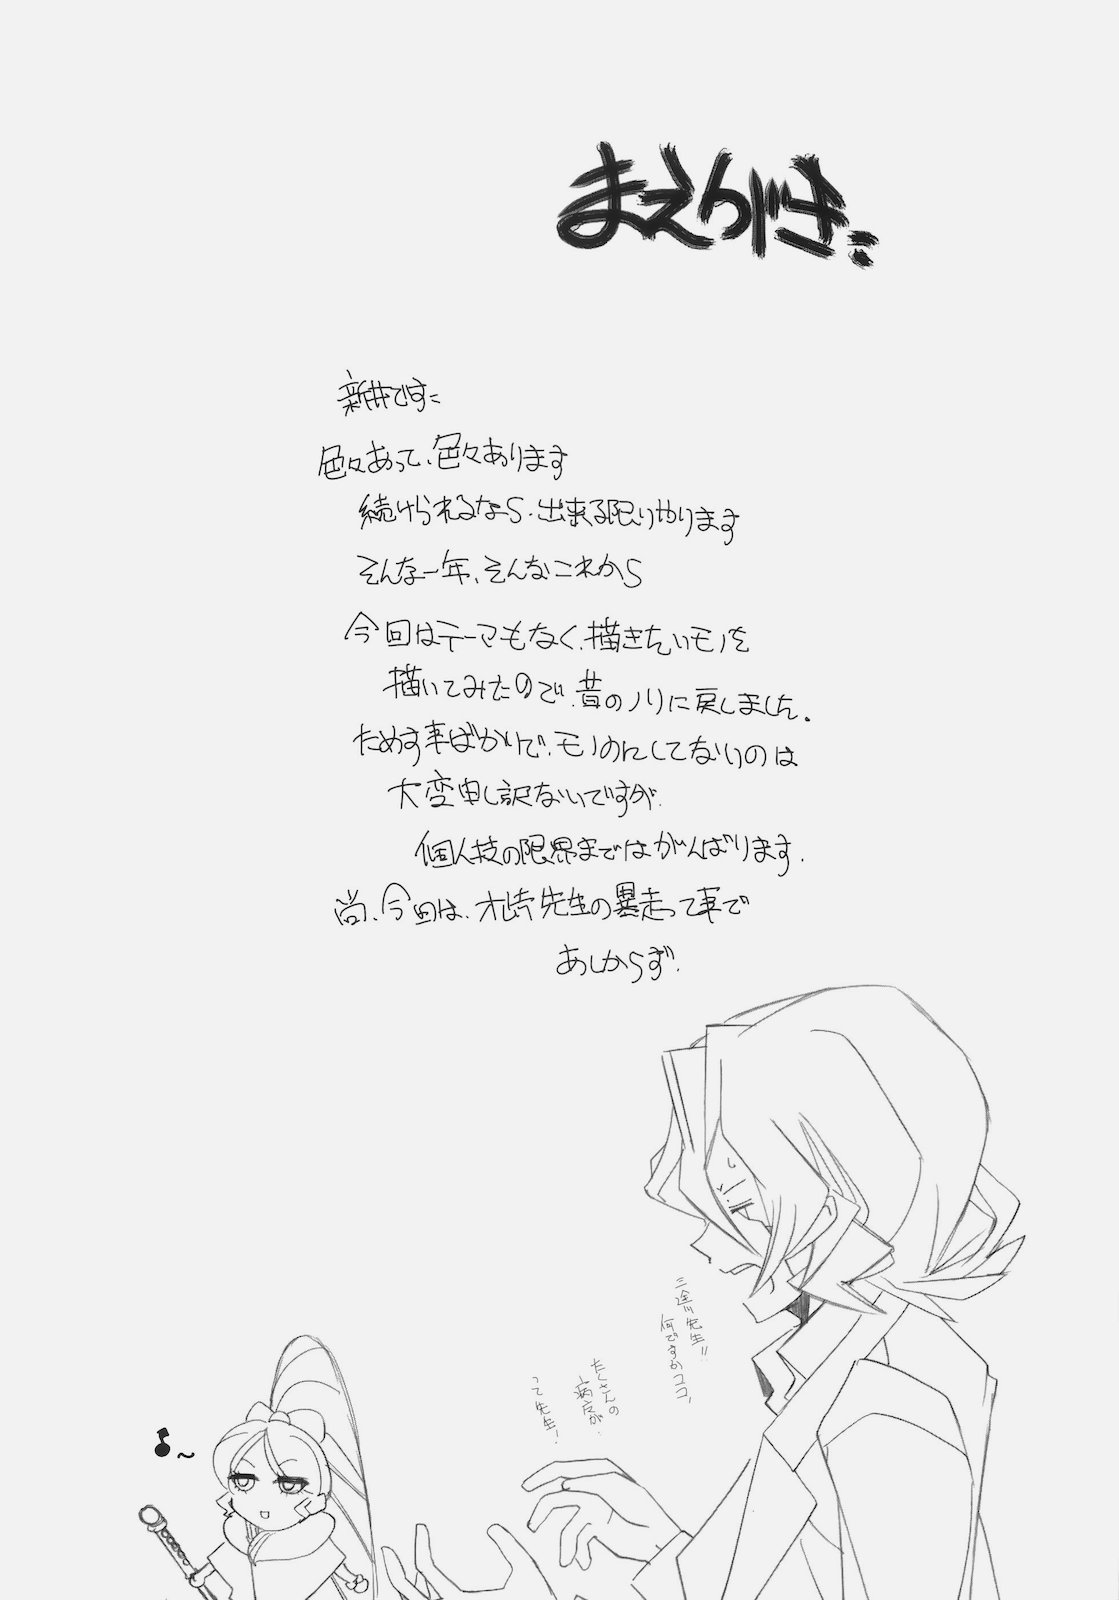 まえがき
新井です
色々あって、色々あります
続けられるなら、出来る限りやります
そんな一年、そんなこれから
今回はテーマもなく、描きたいモノを
描いてみたので、昔のノリに戻しました。
ためす事ばかりで、モノにしてないのは
大変申し訳ないですが、
個人技の限界まではがんばります。
尚、今回は、オレ的先生の暴走って事で
あしからず。
三途川先生!!
何ですかココ、
たくさんの
病床が、
って先生!